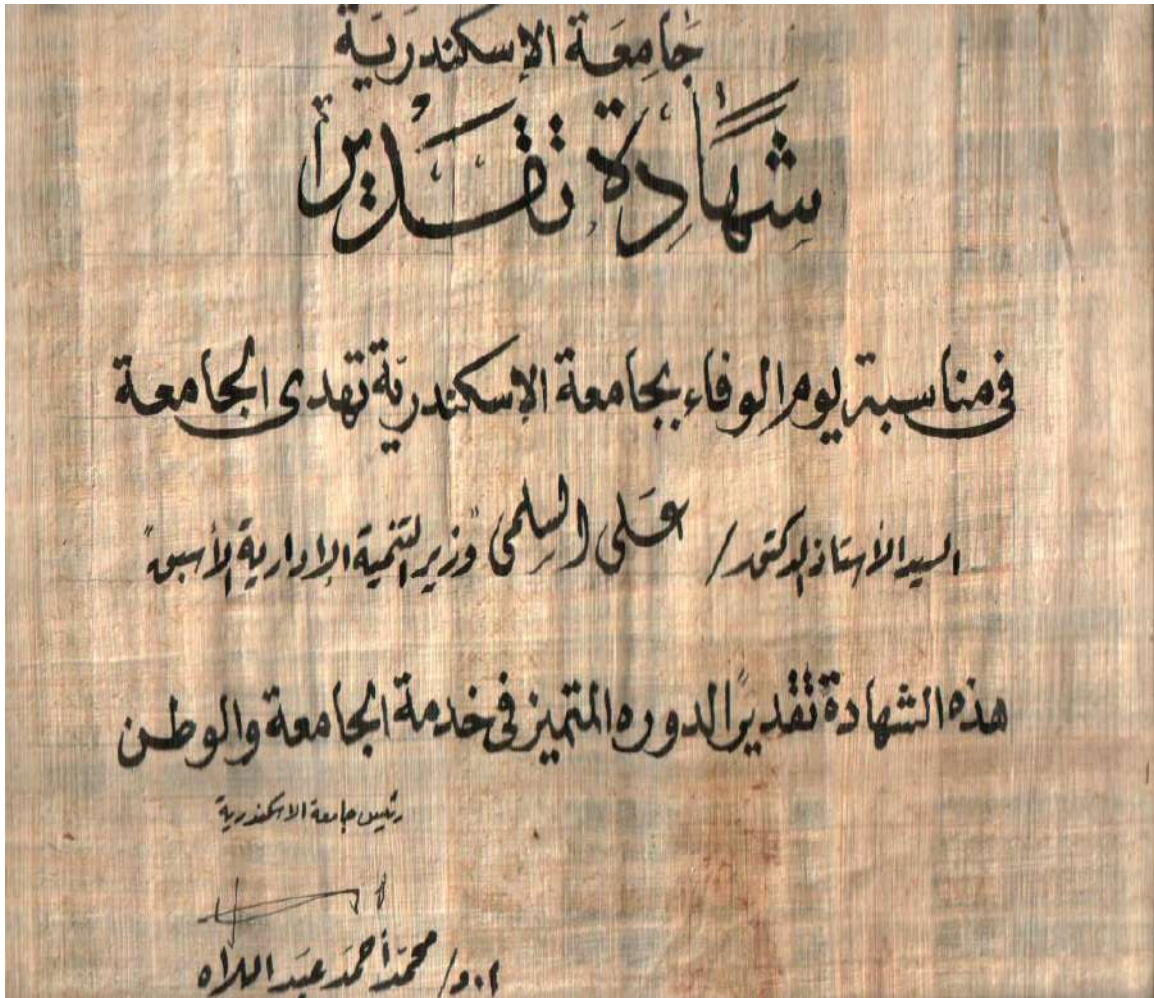 جَامِعَة الإسكندريّة
شَهَادة تقديرًا
فى مناسبة يوم الوفاء بجامعة الإسكندريّة تهدى الجامعة
السيد الأستاذ الدكتور / عَلى السِلمى "وزير التنمية الإدارية الأسبق"
هذه الشهادة تقديرًا لدوره المتميز فى خدمة الجامعة والوطن
رئيس جامعة الاسكندرية
أ.د/ محمّد أحمَد عبَد اللاه